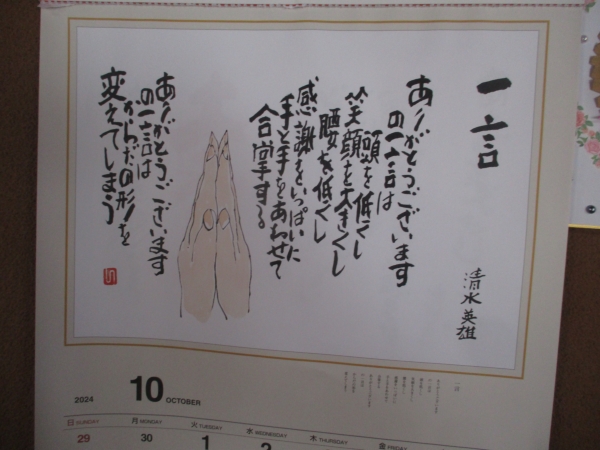 一言
ありがとうございます
の一言は
頭を低くし
笑顔を大きくし
腰を低くし
感謝をいっぱいに
手と手をあわせて
合掌する
ありがとうございます
の一言は
からだの形を
変えてしまう
清水英雄
一言
2024 10 OCTOBER
日 SUNDAY 月 MONDAY 火 TUESDAY 水 WEDNESDAY 木 THURSDAY 金 FRIDAY
29 30 1 2